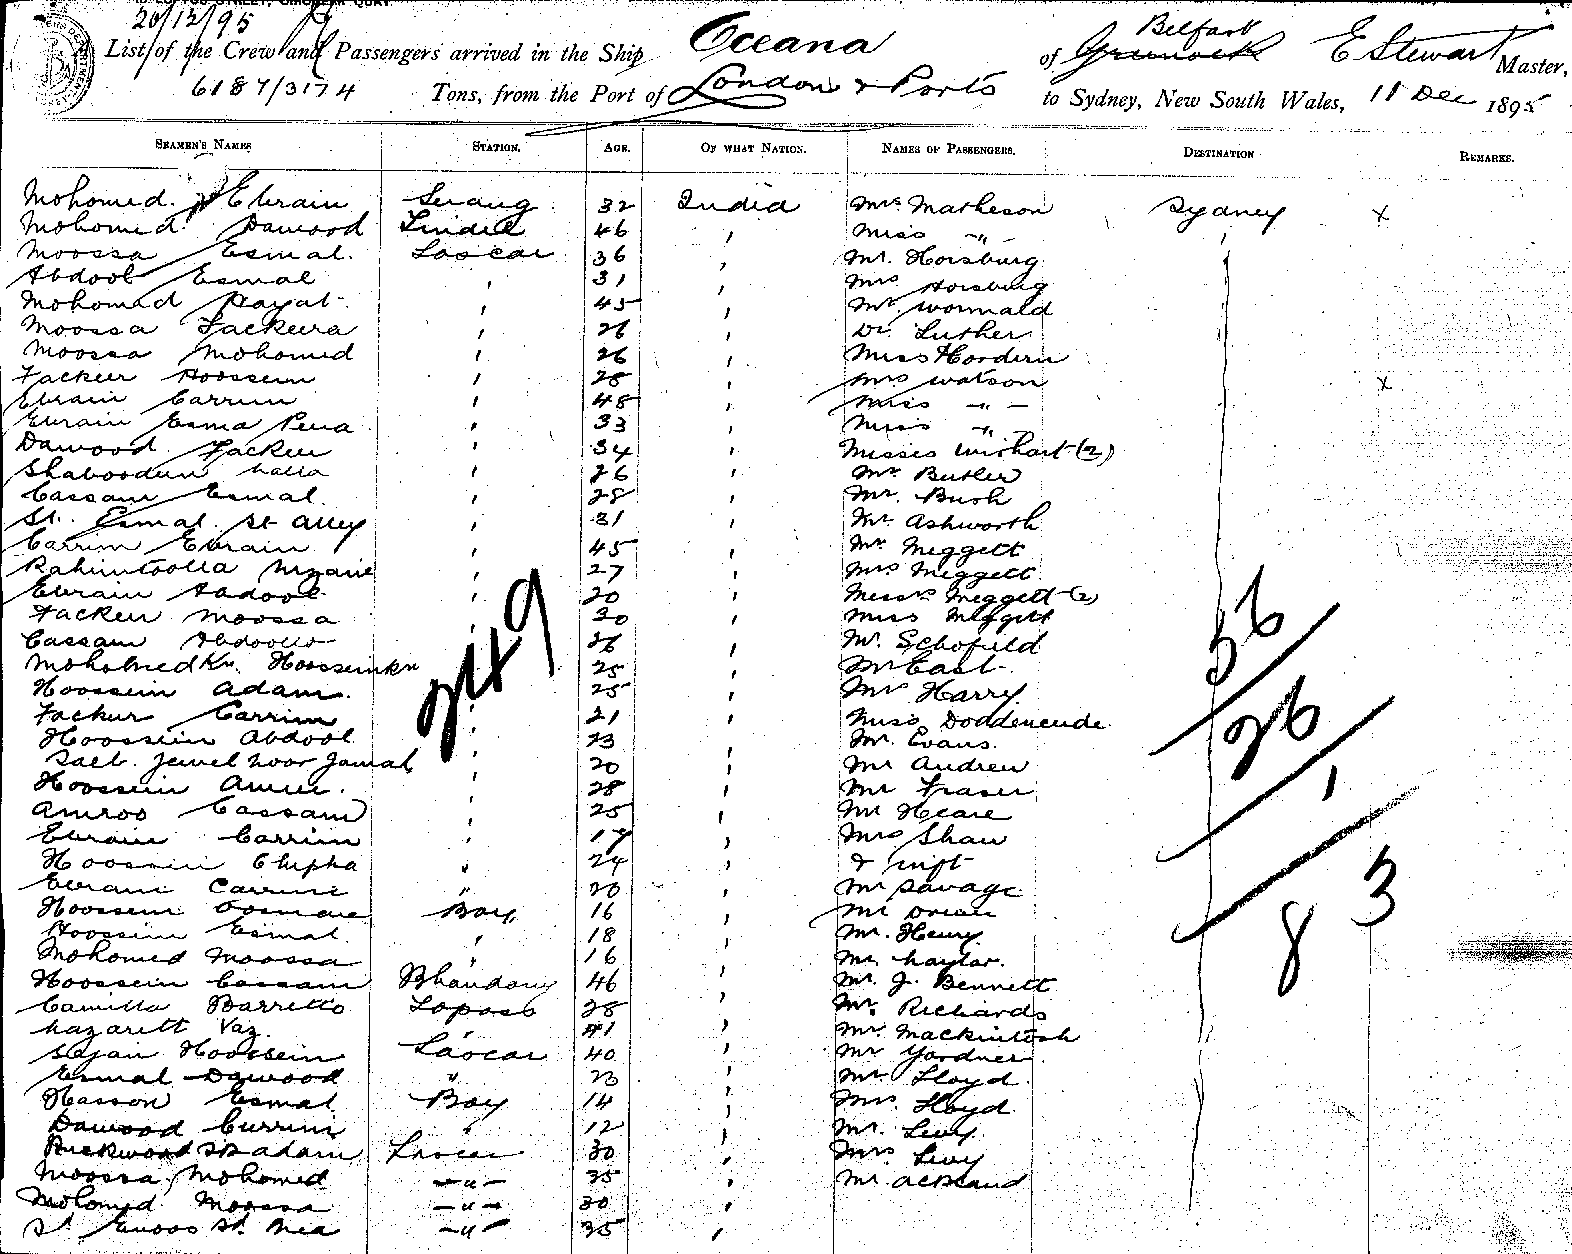 20/12/95
List of the Crew and Passengers arrived in the Ship Oceana of Greenock Belfast E Stewart Master,
6187/3174 Tons, from the Port of London & Ports to Sydney, New South Wales, 11 Dec 1895
SEAMEN'S NAMES STATION. AGE. OF WHAT NATION. NAMES OF PASSENGERS. DESTINATION REMARKS.
Mohomed Ebrain Serang 32 India Mrs Matheson Sydney x
Mohomed Dawood Tindel 46 " Miss -"- "
Moossa Esmal. Lascar 36 " Mr. Horsburg
Abdool Esmal " 31 " Mrs Horsburg
Mohomed Hayat " 45 " Mr Wormald
Moossa Fackeera " 26 " Dr. Luther
Moossa Mohomed " 26 " Miss Hordern
Fackeer Hoossein " 28 " Mrs Watson x
Ebrain Carrim " 48 " Miss -"-
Ebrain Esma Peera " 33 " Miss -"-
Dawood Fackeer " 34 " Misses Wishart (2)
Shaboodun " 26 " Mr Butler
Cassam Esmal. " 28 " Mr. Bush
St. Esmal. St Alley " 31 " Mr Ashworth
Carrim Ebrain " 45 " Mr Meggett
Rahimtoolla " 27 " Mrs Meggett
Ebrain Abdool " 20 " Messrs Meggett (2)
Fackeer Moossa " 30 " Miss Meggett
Cassam Abdoolla " 26 " Mr. Schofield
Mohomed Kn. Hoossein Kn " 25 " Mr East
Hoossein Adam. " 25 " Mr Harry
Fackur Carrim " 21 " Miss
Hoossein Abdool " 23 " Mr. Evans.
Jewel Noor Jamal " 20 " Mr Andrew
Hoossein " 28 " Mr Fraser
Amroo Cassam " 25 " Mr Heare
Ebrain Carrim " 17 " Mrs Shaw
Hoossein " 24 " & inft
Ebrain Carrim " 20 " Mr Savage
Hoossein Oosman Boy 16 " Mr
Hoossein Esmal. " 18 " Mr. Henry
Mohomed Moossa " 16 " Mr Naylor.
Hoossein Cassam Bhandary 46 " Mr. J. Bennett
Camilla Barretto Topass 28 " Mr. Richards
Nazarett Vaz. 41 " Mr. Mackintosh
Hoossein Lascar 40 " Mr Gardner
Esmal Dawood " 23 " Mr Lloyd.
Hasson Esmal Boy 14 " Mrs. Lloyd.
Dawood Currim " 12 " Mr. Levy.
Adam Lascar 30 " Mrs Levy
Moossa Mohomed -"- 35 " Mr Ackland
Mohomed Moossa -"- 30 "
St. St. -"- 35 "
56
26
1
83